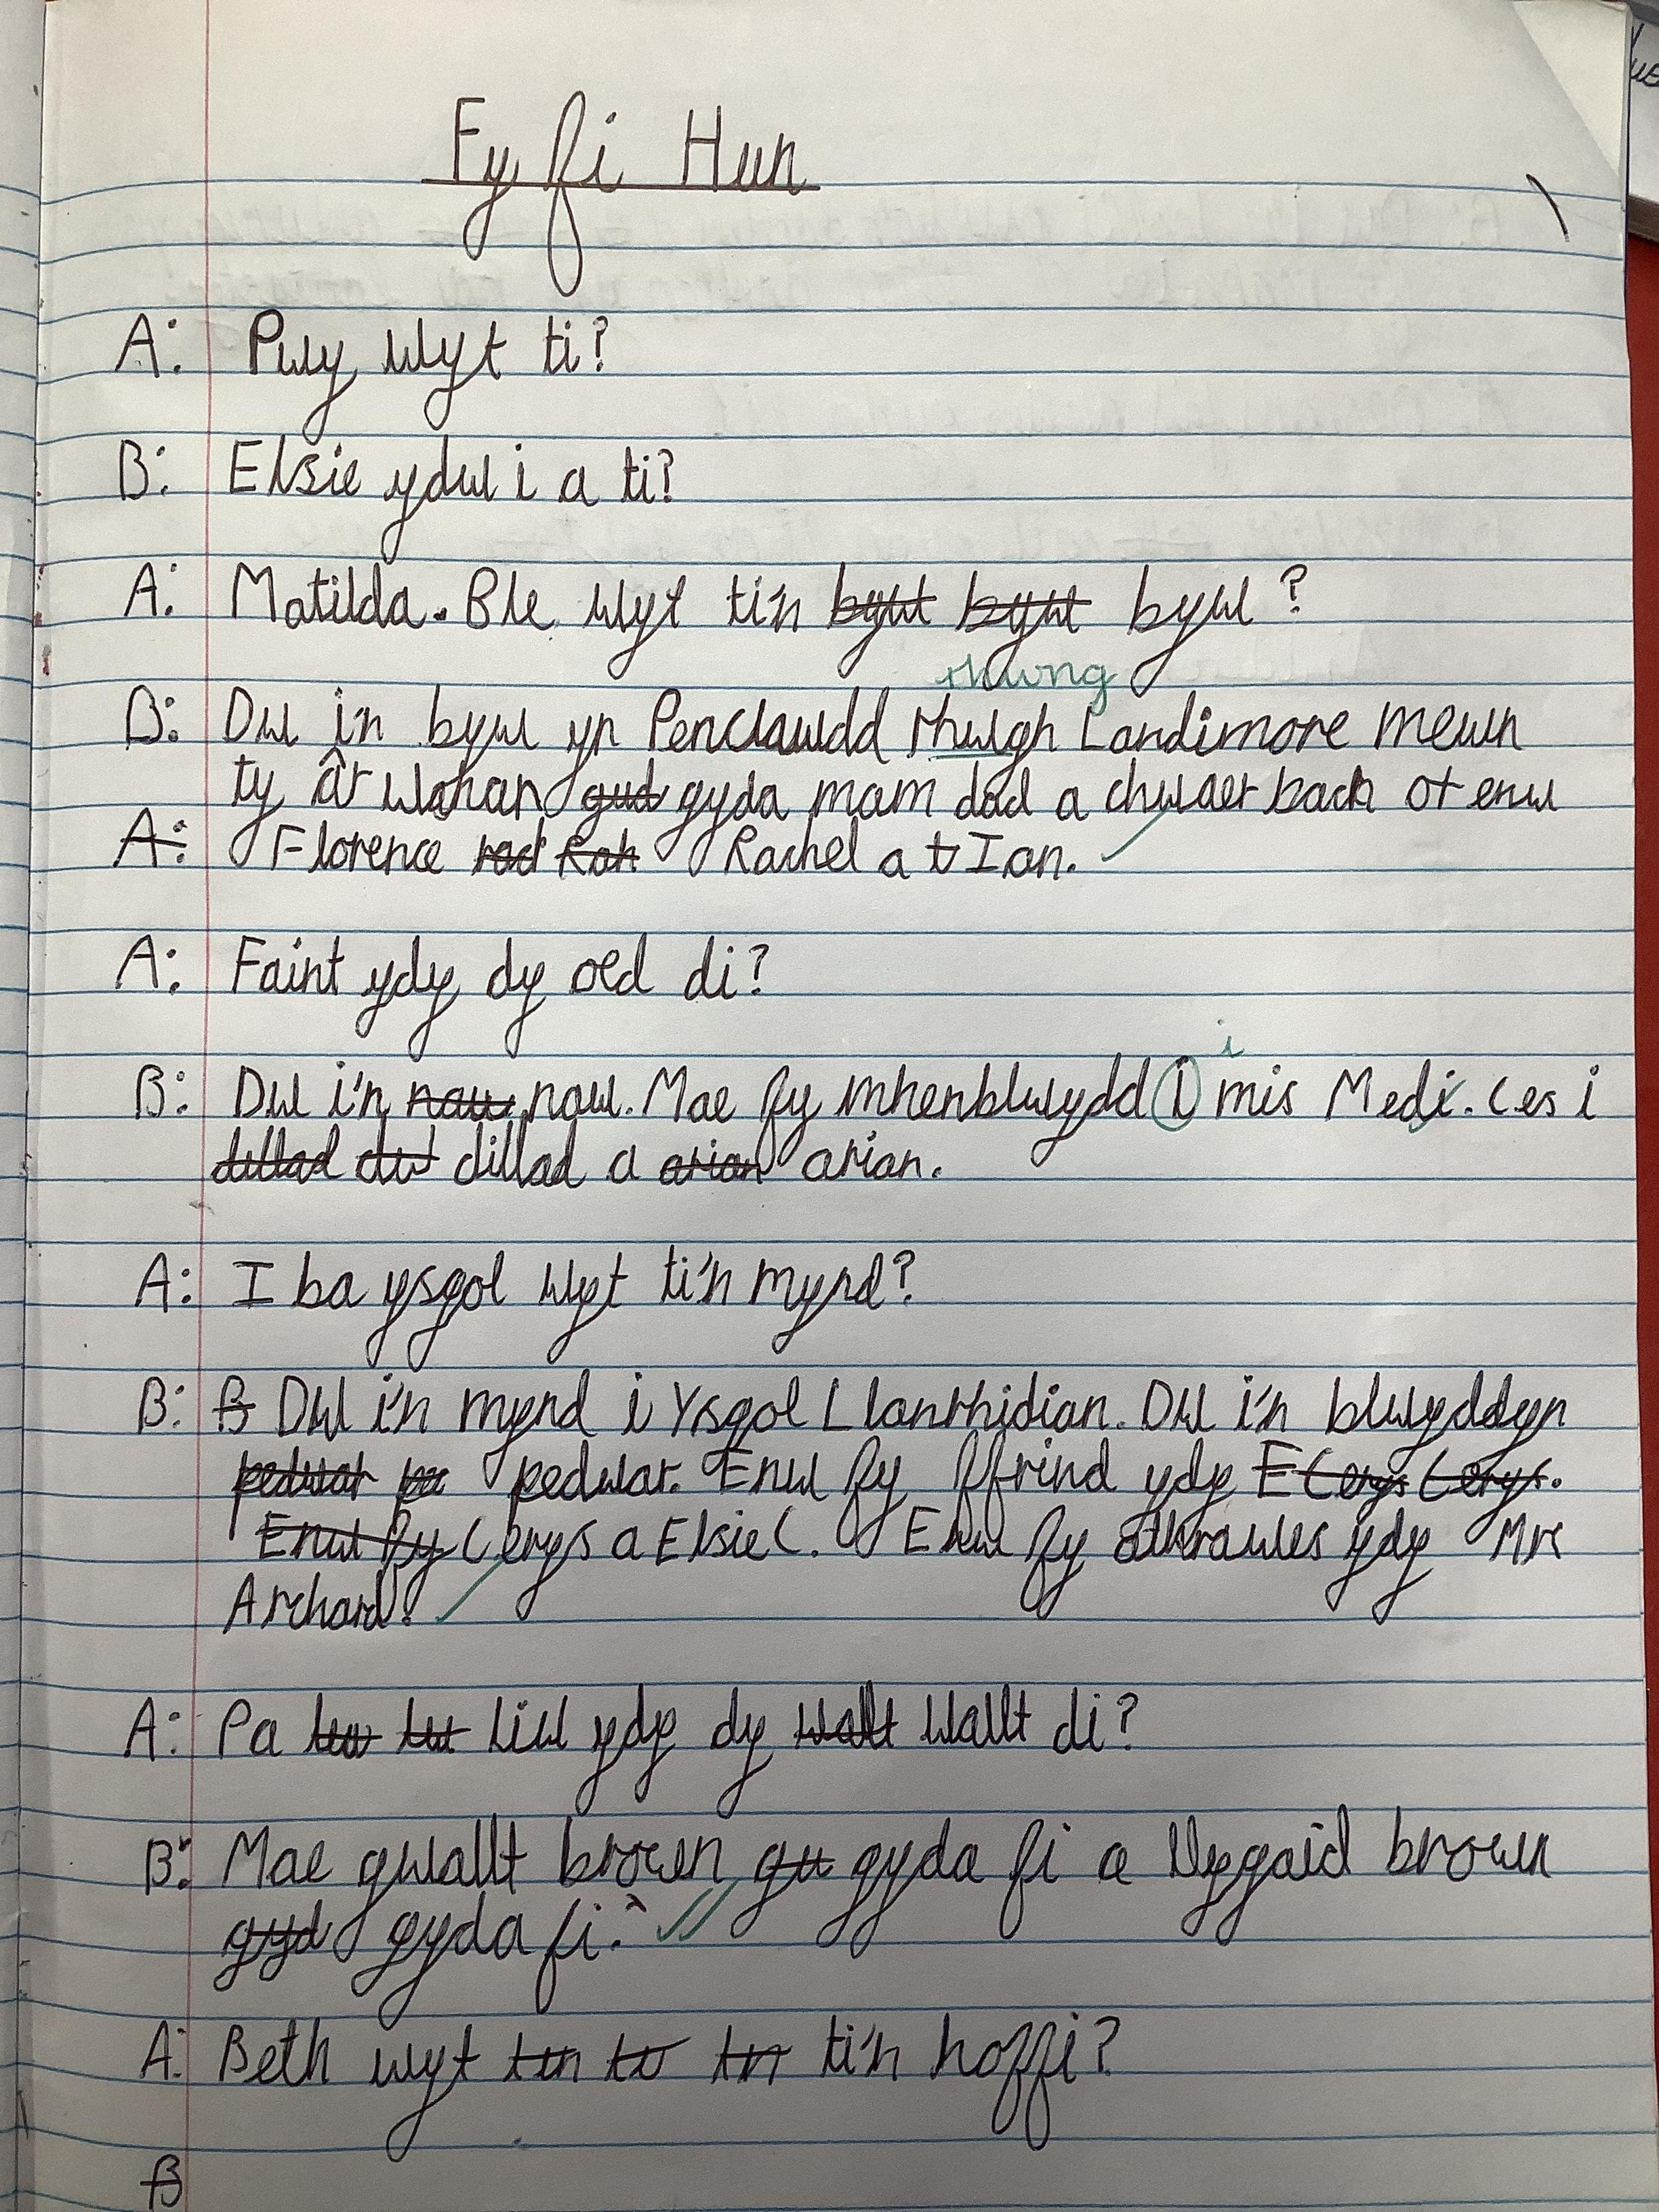 Fy fi Hun
A: Pwy wyt ti?
B: Elsie ydw i a ti?
A: Matilda. Ble wyt ti'n bywt bywt byw?
rhwng
B: Dw i'n byw yn Penclawdd rhwgh Landimore mewn
ty âr wahan gud gyda mam dad a chwaer bach or enw
A: Florence rad Rah Rachel a t Ian.
A: Faint ydy dy oed di?
i
B: Dw i'n naw naw. Mae fy mhenblwydd i mis Medi. Ces i
dillad dw dillad a arian arian.
A: I ba ysgol wyt ti'n mynd?
B: B Dw i'n mynd i Ysgol Llanrhidian. Dw i'n blwyddyn
pedwar pe pedwar. Enw fy ffrind ydy E Cerys Cerys.
Enw fy Cerys a Elsie C. Enw fy athrawes ydy Mrs
Archard.
A: Pa lw lw liw ydy dy walt wallt di?
B: Mae gwallt brown gu gyda fi a llygaid brown
gyd gyda fi.
A: Beth wyt tin ti tn ti'n hoffi?
B